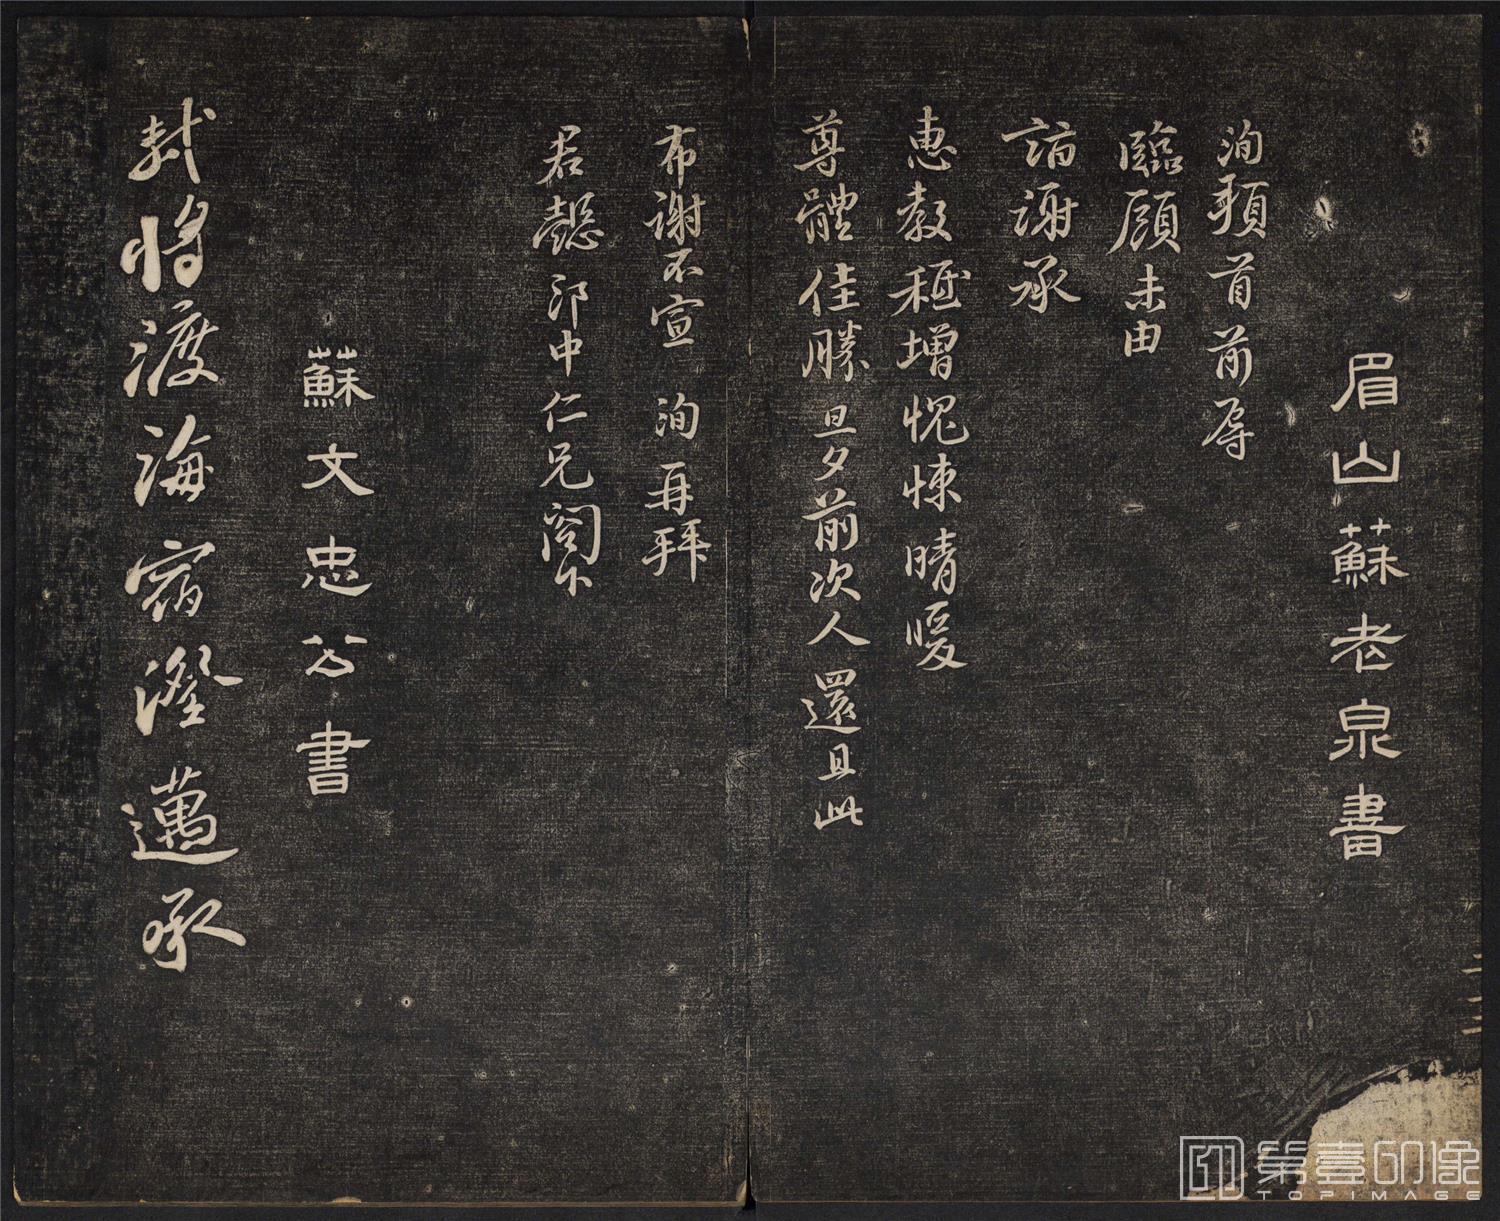 眉山蘇老泉書
洵頓首前辱
臨顧未由
詣謝承
惠教秪增愧悚晴暖
尊體佳勝旦夕前次人還且此
布謝不宣 洵再拜
君懿郎中仁兄閤下
蘇文忠公書
軾將渡海宿澄邁承
第壹印像
TOPIMAGE